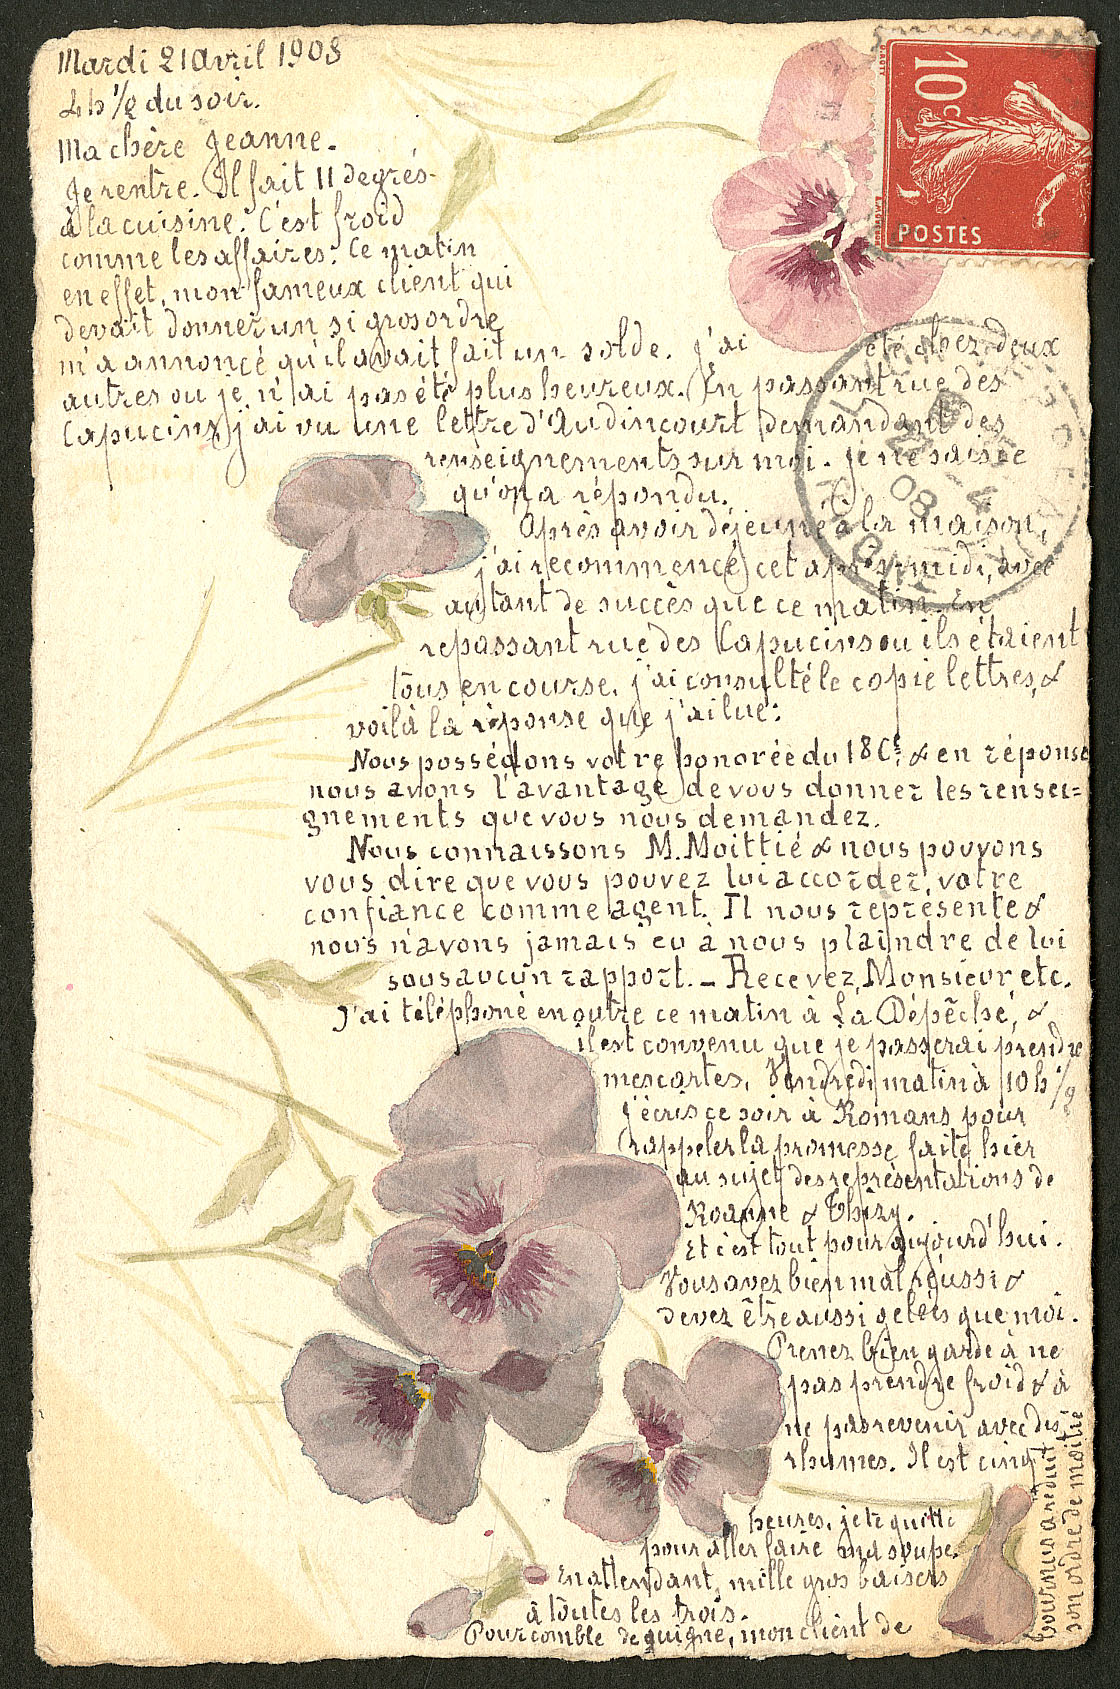 Mardi 21 Avril 1908
4h 1/2 du soir.
Ma chère Jeanne.
Je rentre. Il fait 11 degrés
à la cuisine. C'est froid
comme les affaires. Ce matin
en effet, mon fameux client qui
devait donner un si gros ordre
m'a annoncé qu'il avait fait un solde. J'ai été chez deux
autres ou je n'ai pas été plus heureux. En passant rue des
Capucins j'ai vu une lettre d'Audincourt demandant des
renseignements sur moi. Je ne sais ce
qu'on a répondu.
Après avoir déjeuné à la maison,
j'ai recommencé cet après midi, avec
autant de succès que ce matin. En
repassant rue des Capucins ou ils étaient
tous en course, j'ai consulté le copie lettres, &
voilà la réponse que j'ai lue:
Nous possédons votre honorée du 18 Ct & en réponse
nous avons l'avantage de vous donner les rensei=
gnements que vous nous demandez.
Nous connaissons M. Moittié & nous pouvons
vous dire que vous pouvez lui accorder votre
confiance comme agent. Il nous représente &
nous n'avons jamais eu à nous plaindre de lui
sous aucun rapport. – Recevez, Monsieur, etc.
J'ai téléphoné en outre ce matin à La Dépêche, &
il est convenu que je passerai prendre
mes cartes, Vendredi matin à 10h 1/2
J'écris ce soir à Romans pour
rappeler la promesse faite hier
au sujet des représentations de
Roanne & Thizy.
Et c'est tout pour aujourd'hui.
Vous avez bien mal réussi &
devez être aussi gelées que moi.
Prenez bien garde à ne
pas prendre froid & à
ne pas revenir avec des
rhumes. Il est cinq
heures, je te quitte
pour aller faire ma soupe.
En attendant, mille gros baisers
à toutes les trois.
Pour comble de guigne, mon client de
Tournus a réduit
son ordre de moitié
10c
POSTES
RHONE
21 -4
08